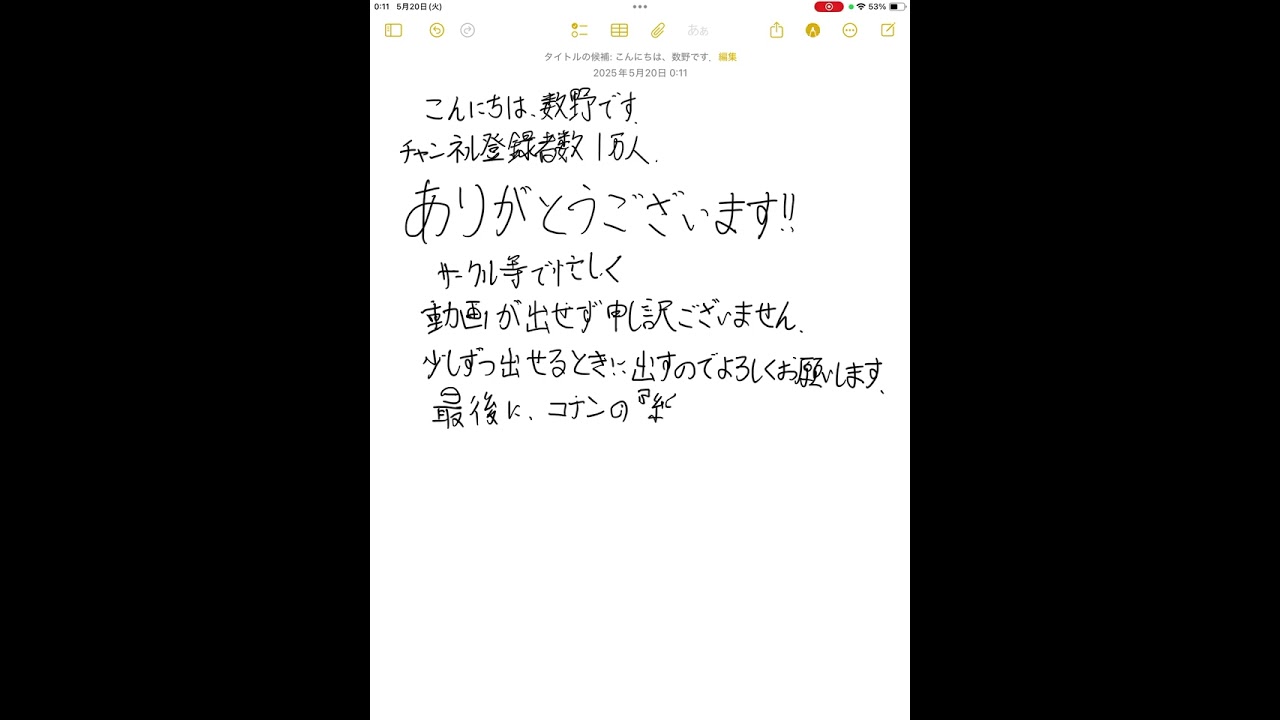 0:11 5月20日(火)
53%
あぁ
タイトルの候補: こんにちは、数野です. 編集
2025年5月20日 0:11
こんにちは、数野です.
チャンネル登録者数1万人.
ありがとうございます!!
サークル等で忙しく
動画が出せず申し訳ございません.
少しずつ出せるときに出すのでよろしくお願いします.
最後に、コナンの『